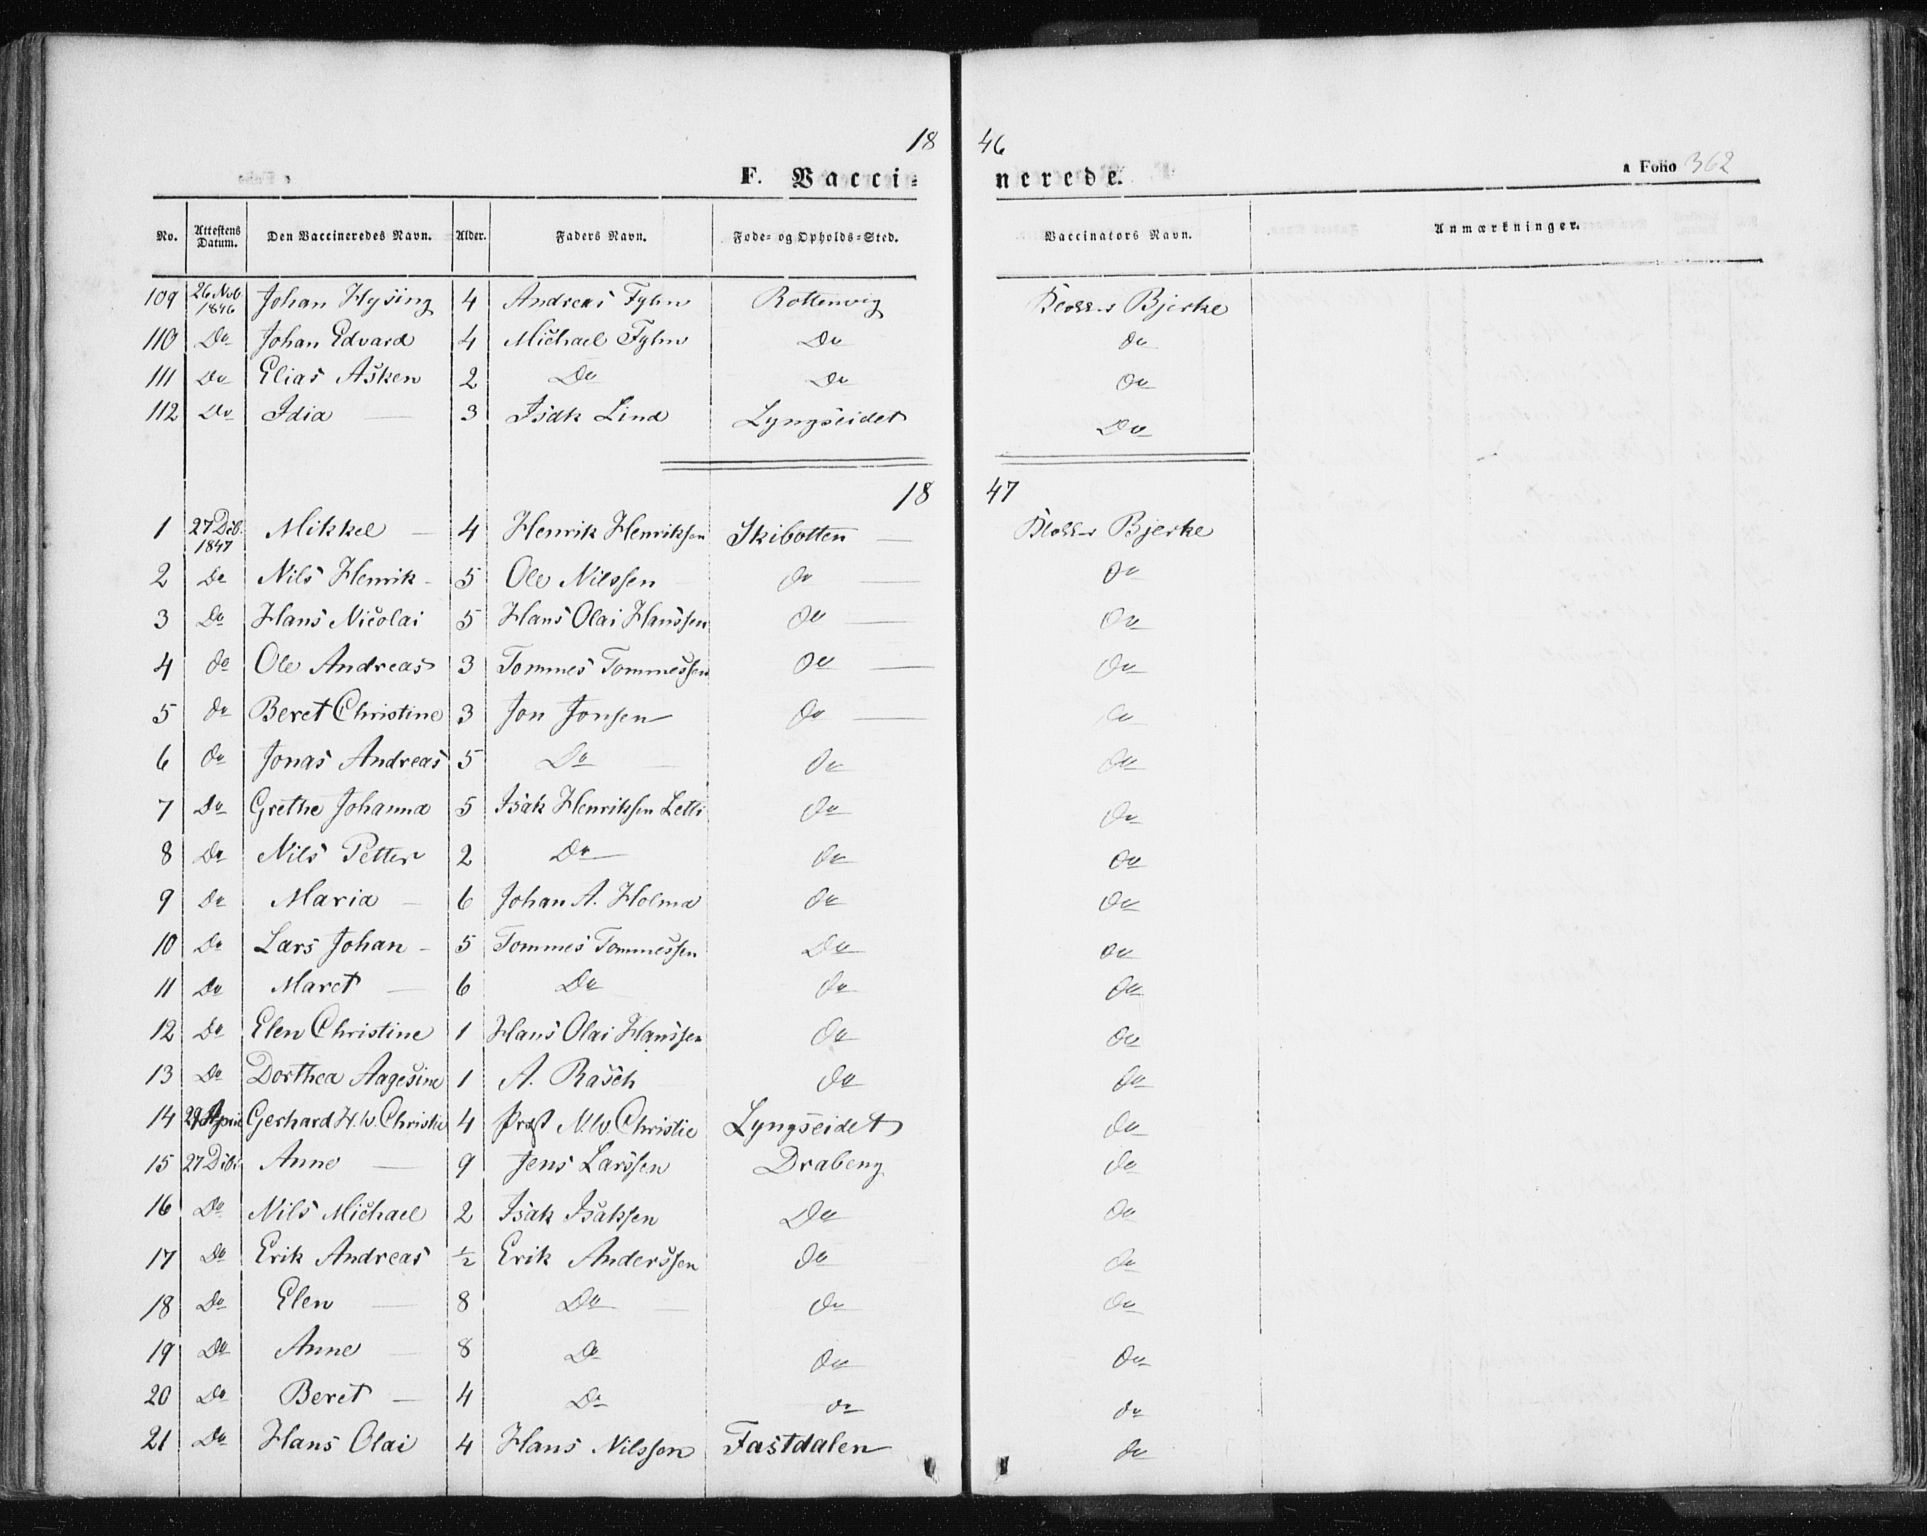 18 46
F. Vacci- nerede. a Folio 362
No. Attestens Datum. Den Vaccineredes Navn. Alder. Faders Navn. Føde- og Opholds-Sted. Vaccinators Navn. Anmærkninger.
109 26 Nvb 1846 Johan Hysing 4 Andreas Fylm Rottenvig Klokker Bjerke
110 Do Johan Edvard 4 Michael Fylm Do do
111 Do Elias Asken 2 Do Do do
112 Do Idia — 3 Isak Lind Lyngseidet Do
18 47
1 27 Dcb. 1847 Mikkel — 4 Henrik Henriksen Skibotten — Klokker Bjerke
2 Do Nils Henrik - 5 Ole Nilssen do — do
3 Do Hans Nicolai 5 Hans Olai Hanssen do — do
4 do Ole Andreas 3 Tommes Tommessen do — do
5 do Beret Christine 3 Jon Jonsen do — do
6 do Jonas Andreas 5 Do — do do
7 Do Grethe Johanna 5 Isak Henriksen Letti do do
8 Do Nils Petter 2 Do do do
9 Do Maria — 6 Johan A. Holma do do
10 Do Lars Johan - 5 Tommes Tommessen Do do
11 Do Maret — 6 Do do do
12 Do Elen Christine 1 Hans Olai Hanssen do do
13 Do Dorthea Aagesine 1 A. Rasch do do
14 April Gerhard H. W. Christie 4 Præst N. W Christie Lyngseidet do
15 27 Dcb. Anne — 9 Jens Larssen Drabeng do
16 Do Nils Michael 2 Isak Isaksen Do do
17 Do Erik Andreas ½ Erik Anderssen do do
18 Do Elen — 8 Do — do do
19 Do Anne — 8 Do do do
20 Do Beret — 4 Do do do
21 Do Hans Olai 4 Hans Nilssen Fastdalen do